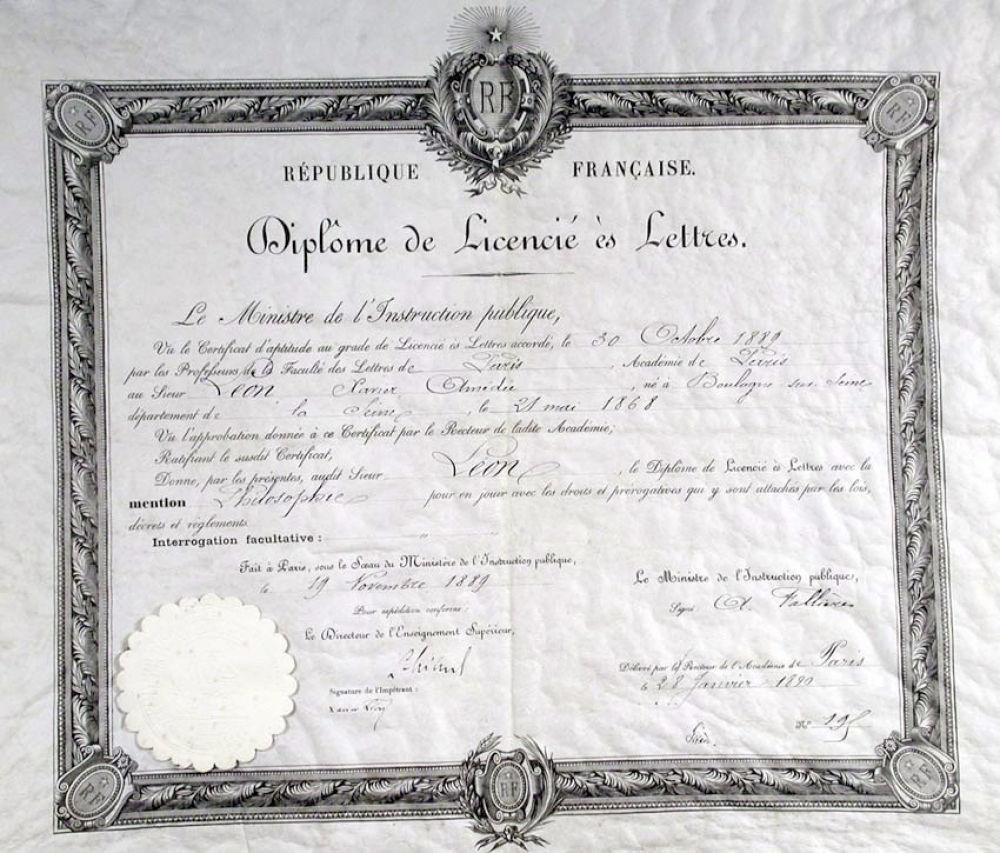 RF
RF
RF
RÉPUBLIQUE FRANÇAISE.
Diplôme de Licencié ès Lettres.
Le Ministre de l'Instruction publique,
Vu le Certificat d'aptitude au grade de Licencié ès Lettres accordé, le 30 Octobre 1889
par les Professeurs de la Faculté des Lettres de Paris, Académie de Paris
au Sieur Léon Xavier Amédée, né à Boulogne sur Seine
département de la Seine, le 21 mai 1868
Vu l'approbation donnée à ce Certificat par le Recteur de ladite Académie;
Ratifiant le susdit Certificat,
Donne, par les présentes, audit Sieur Léon, le Diplôme de Licencié ès Lettres avec la
mention Philosophie pour en jouir avec les droits et prérogatives qui y sont attachés par les lois,
décrets et règlements.
Interrogation facultative : "
Fait à Paris, sous le Sceau du Ministère de l'Instruction publique,
le 19 Novembre 1889
Pour expédition conforme :
Le Directeur de l'Enseignement Supérieur,
Le Ministre de l'Instruction publique,
Signé A. Fallières
Signature de l'Impétrant :
Xavier Léon
Délivré par le Recteur de l'Académie de Paris
le 28 Janvier
Nº 195
RF
RF
RF